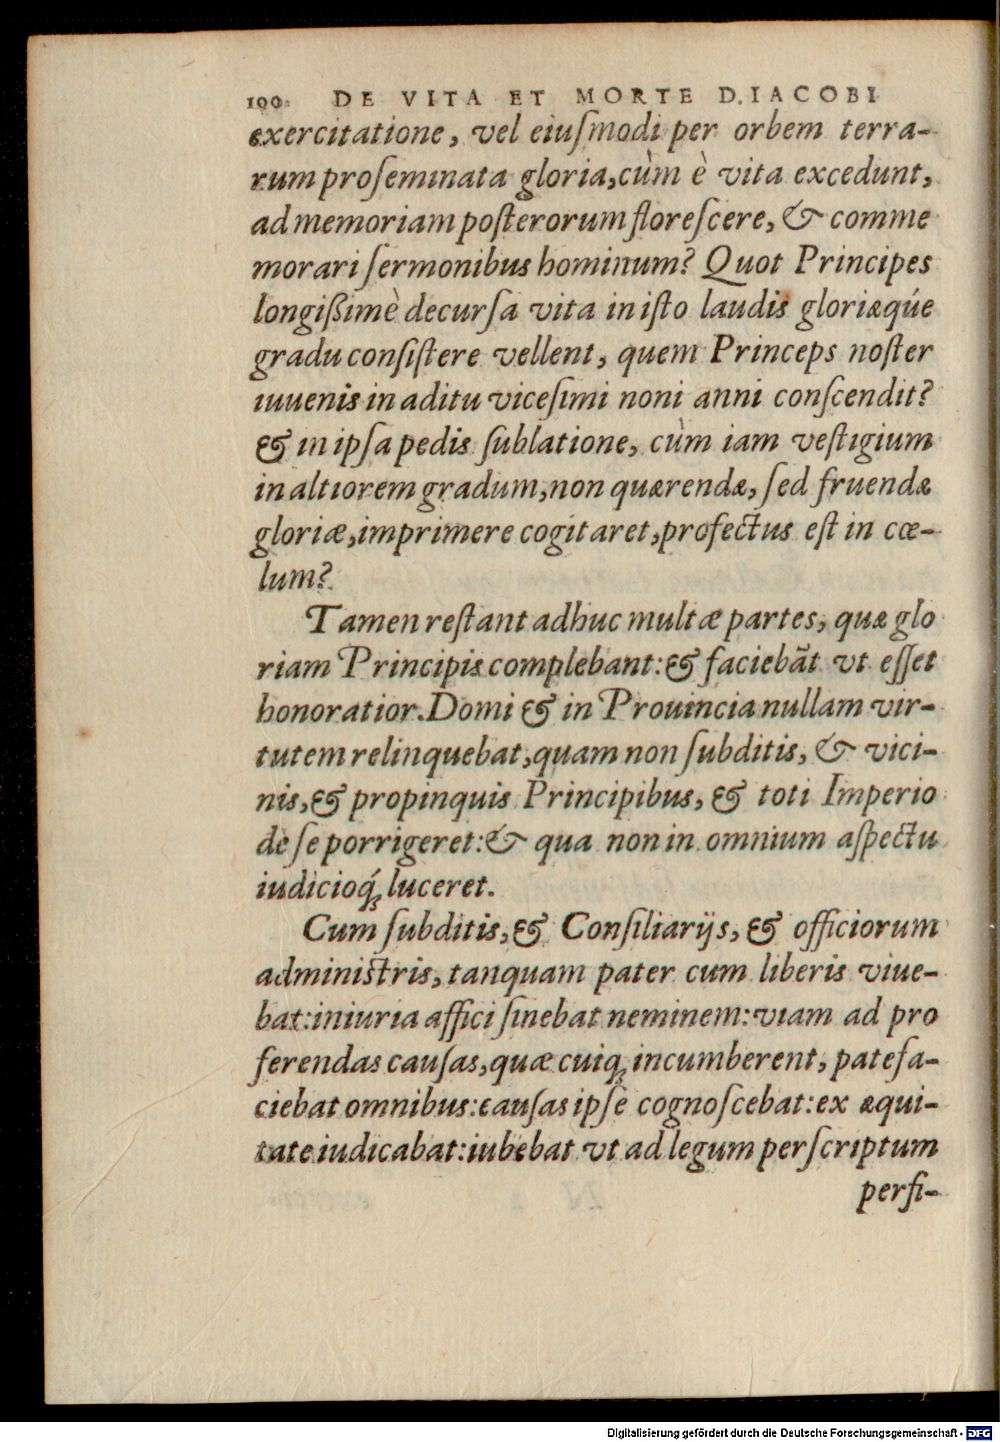 100. DE VITA ET MORTE D. IACOBI
exercitatione, vel eiuſmodi per orbem terra-
rum proſeminata gloria, cùm è vita excedunt,
ad memoriam poſterorum floreſcere, & comme
morari ſermonibus hominum? Quot Principes
longißimè decurſa vita in iſto laudis gloriæq́ue
gradu conſiſtere vellent, quem Princeps noſter
iuuenis in aditu viceſimi noni anni conſcendit?
& in ipſa pedis ſublatione, cùm iam veſtigium
in altiorem gradum, non quærendæ, ſed fruendæ
gloriæ, imprimere cogitaret, profectus eſt in cœ-
lum?
Tamen reſtant adhuc multæ partes, quæ glo
riam Principis complebant: & faciebāt vt eſſet
honoratior. Domi & in Prouincia nullam vir-
tutem relinquebat, quam non ſubditis, & vici-
nis, & propinquis Principibus, & toti Imperio
de ſe porrigeret: & qua non in omnium aſpectu
iudicioq́; luceret.
Cum ſubditis, & Conſiliarijs, & officiorum
adminiſtris, tanquam pater cum liberis viue-
bat: iniuria affici ſinebat neminem: viam ad pro
ferendas cauſas, quæ cuiq; incumberent, patefa-
ciebat omnibus: cauſas ipſe cognoſcebat: ex æqui-
tate iudicabat: iubebat vt ad legum perſcriptum
perfi-
Digitalisierung gefördert durch die Deutsche Forschungsgemeinschaft - DFG